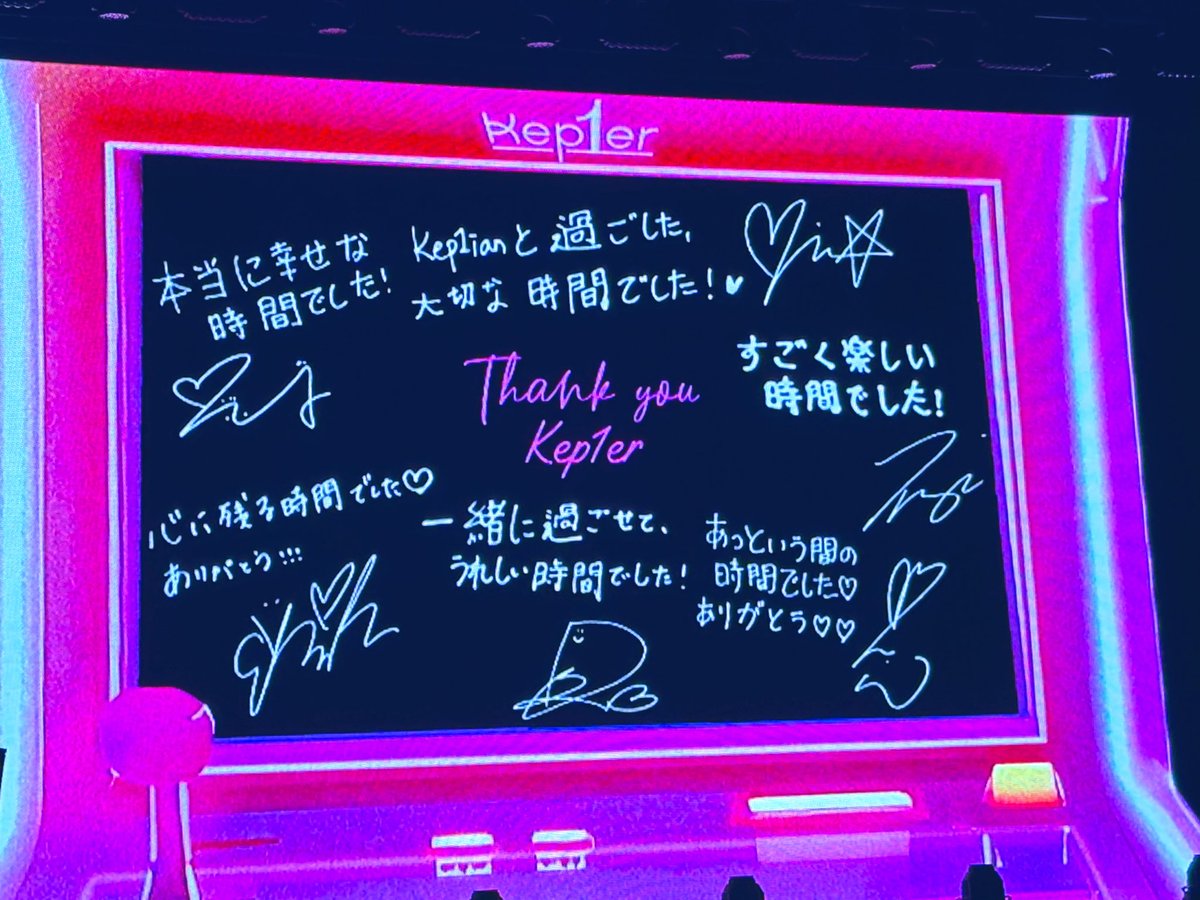 Kep1er
本当に幸せな
時間でした!
Kep1ianと過ごした、
大切な時間でした!
すごく楽しい
時間でした!
Thank you
Kep1er
心に残る時間でした♡
ありがとう!!!
一緒に過ごせて、
うれしい時間でした!
あっという間の
時間でした♡
ありがとう♡♡